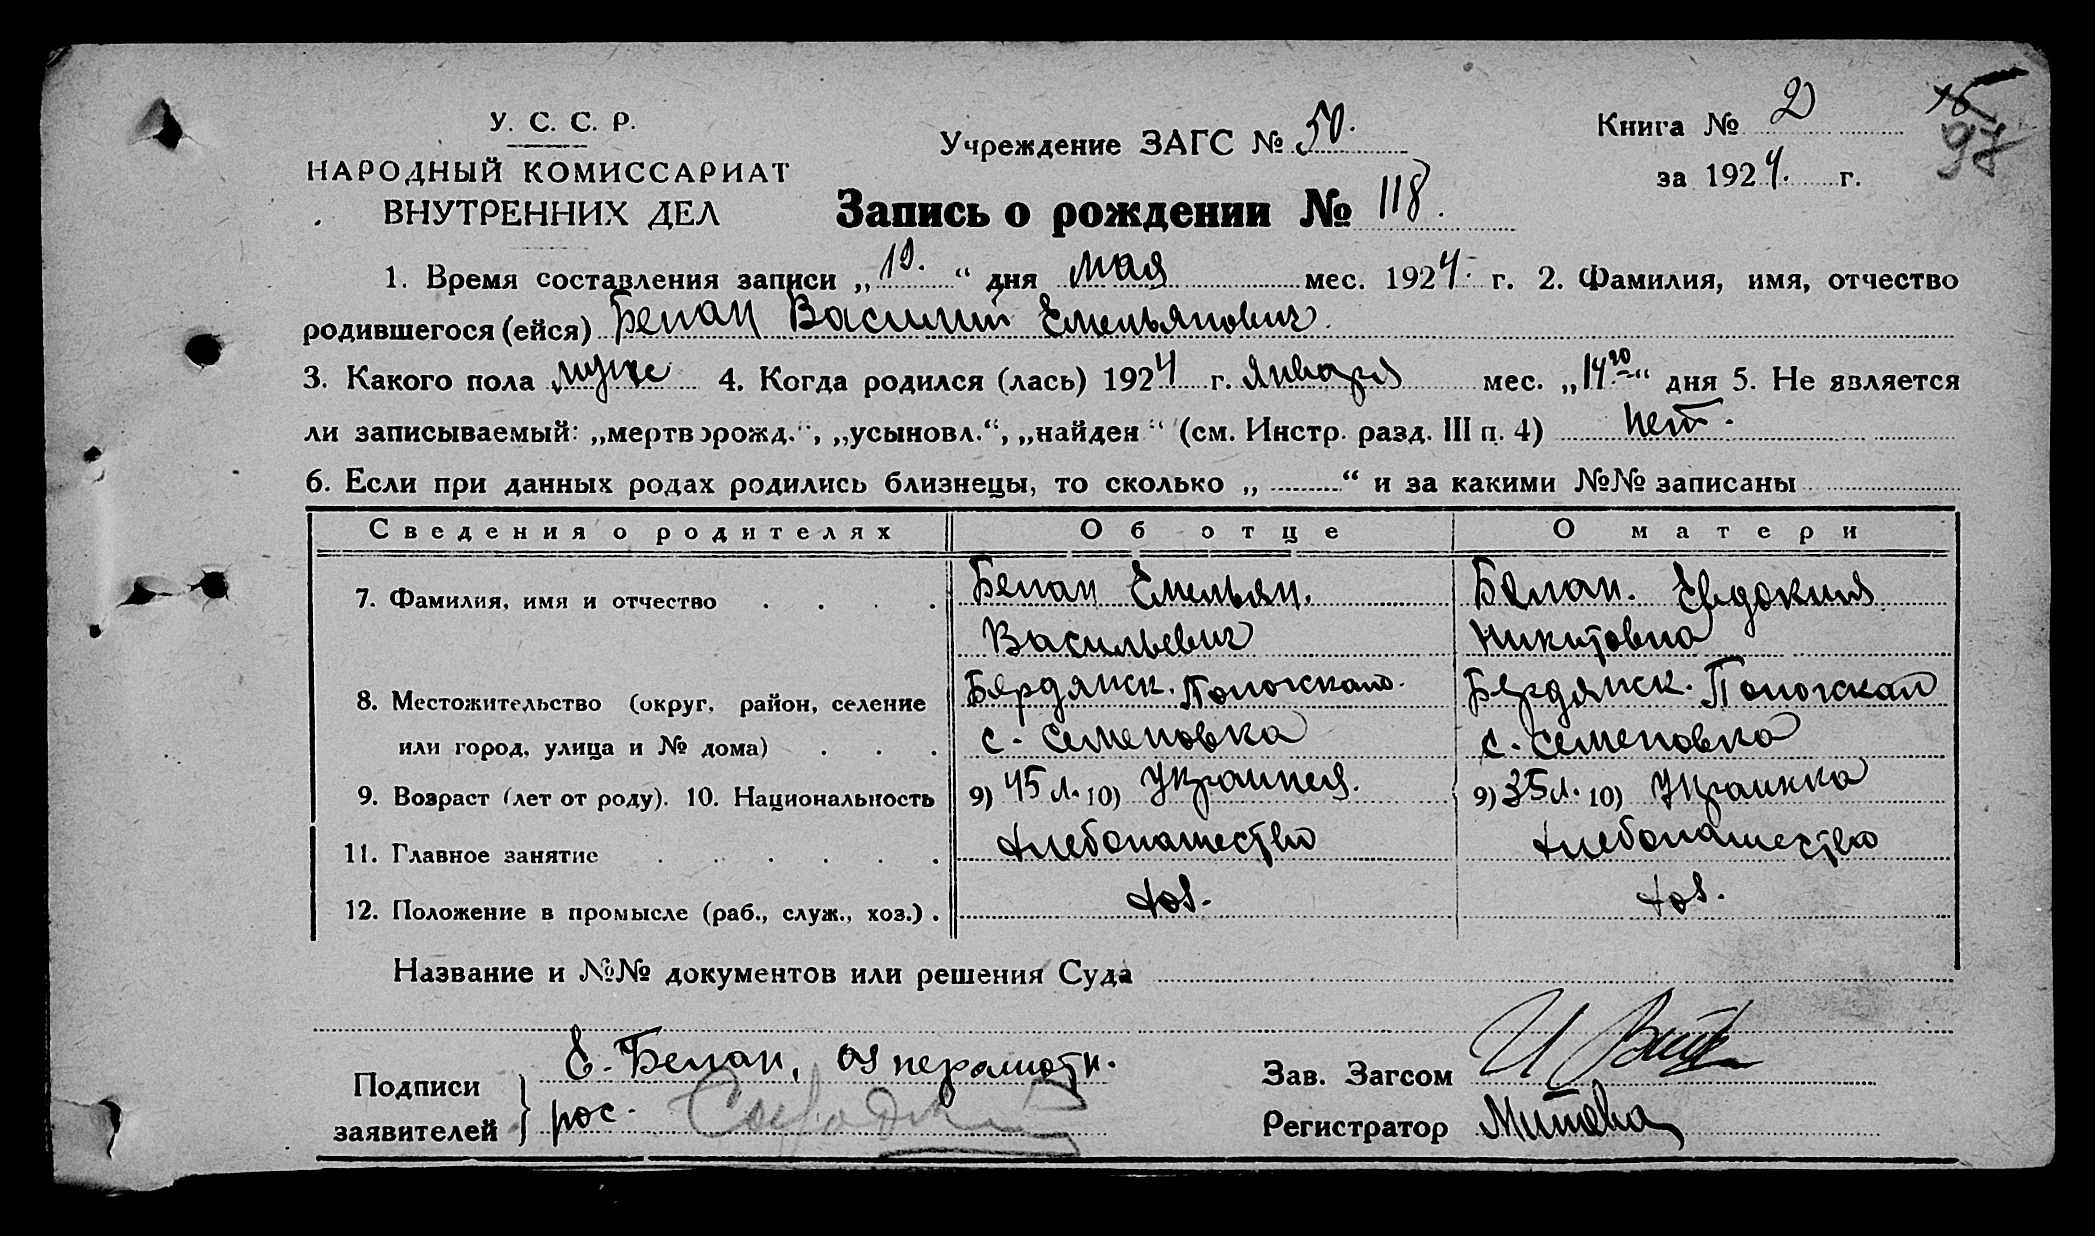 У. С. С. Р.
НАРОДНЫЙ КОМИССАРИАТ
ВНУТРЕННИХ ДЕЛ
Учреждение ЗАГС № 50.
Книга № 2
за 1924. г.
97
Запись о рождении № 118.
1. Время составления записи „19.“ дня мая мес. 1924 г. 2. Фамилия, имя, отчество
родившегося (ейся) Белан Василий Емельянович.
3. Какого пола муже 4. Когда родился (лась) 1924 г. января мес. „14го“ дня 5. Не является
ли записываемый: „мертворожд.“, „усыновл.“, „найден“ (см. Инстр. разд. III п. 4) нет.
6. Если при данных родах родились близнецы, то сколько „ “ и за какими №№ записаны
Сведения о родителях Об отце О матери
7. Фамилия, имя и отчество Белан Емельян. Белан. Евдокия
Васильевич Никитовна
8. Местожительство (округ, район, селение Бердянск. Пологского. Бердянск. Пологскаго
или город, улица и № дома) с. Семеновка с. Семеновка
9. Возраст (лет от роду). 10. Национальность 9) 45 л. 10) Украинец. 9) 35 л. 10) Украинка
11. Главное занятие хлебопашество хлебопашество
12. Положение в промысле (раб., служ., хоз.) хоз. хоз.
Название и №№ документов или решения Суда
Подписи
заявителей
Е. Белан, а за неграмотн.
рос.
Зав. Загсом
Регистратор